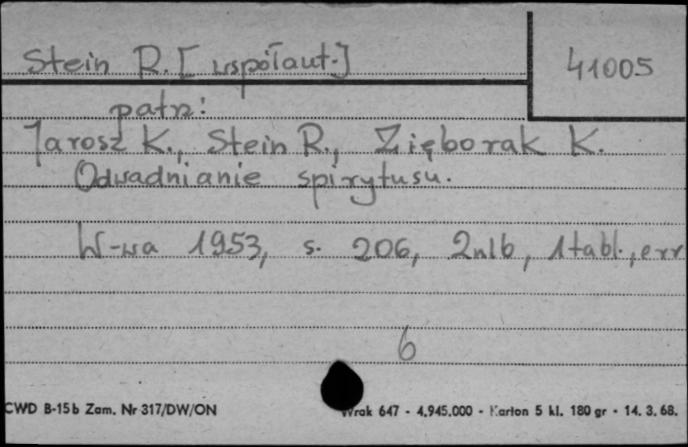 Stein R. [współaut.]
41005
patrz:
Jarosz K., Stein R., Zięborak K.
Odwadnianie spirytusu.
W-wa 1953, s. 206, 2nlb, 1tabl., err
6
CWD B-15b Zam. Nr 317/DW/ON
Wrak 647 - 4.945.000 - Karton 5 kl. 180 gr - 14. 3. 68.